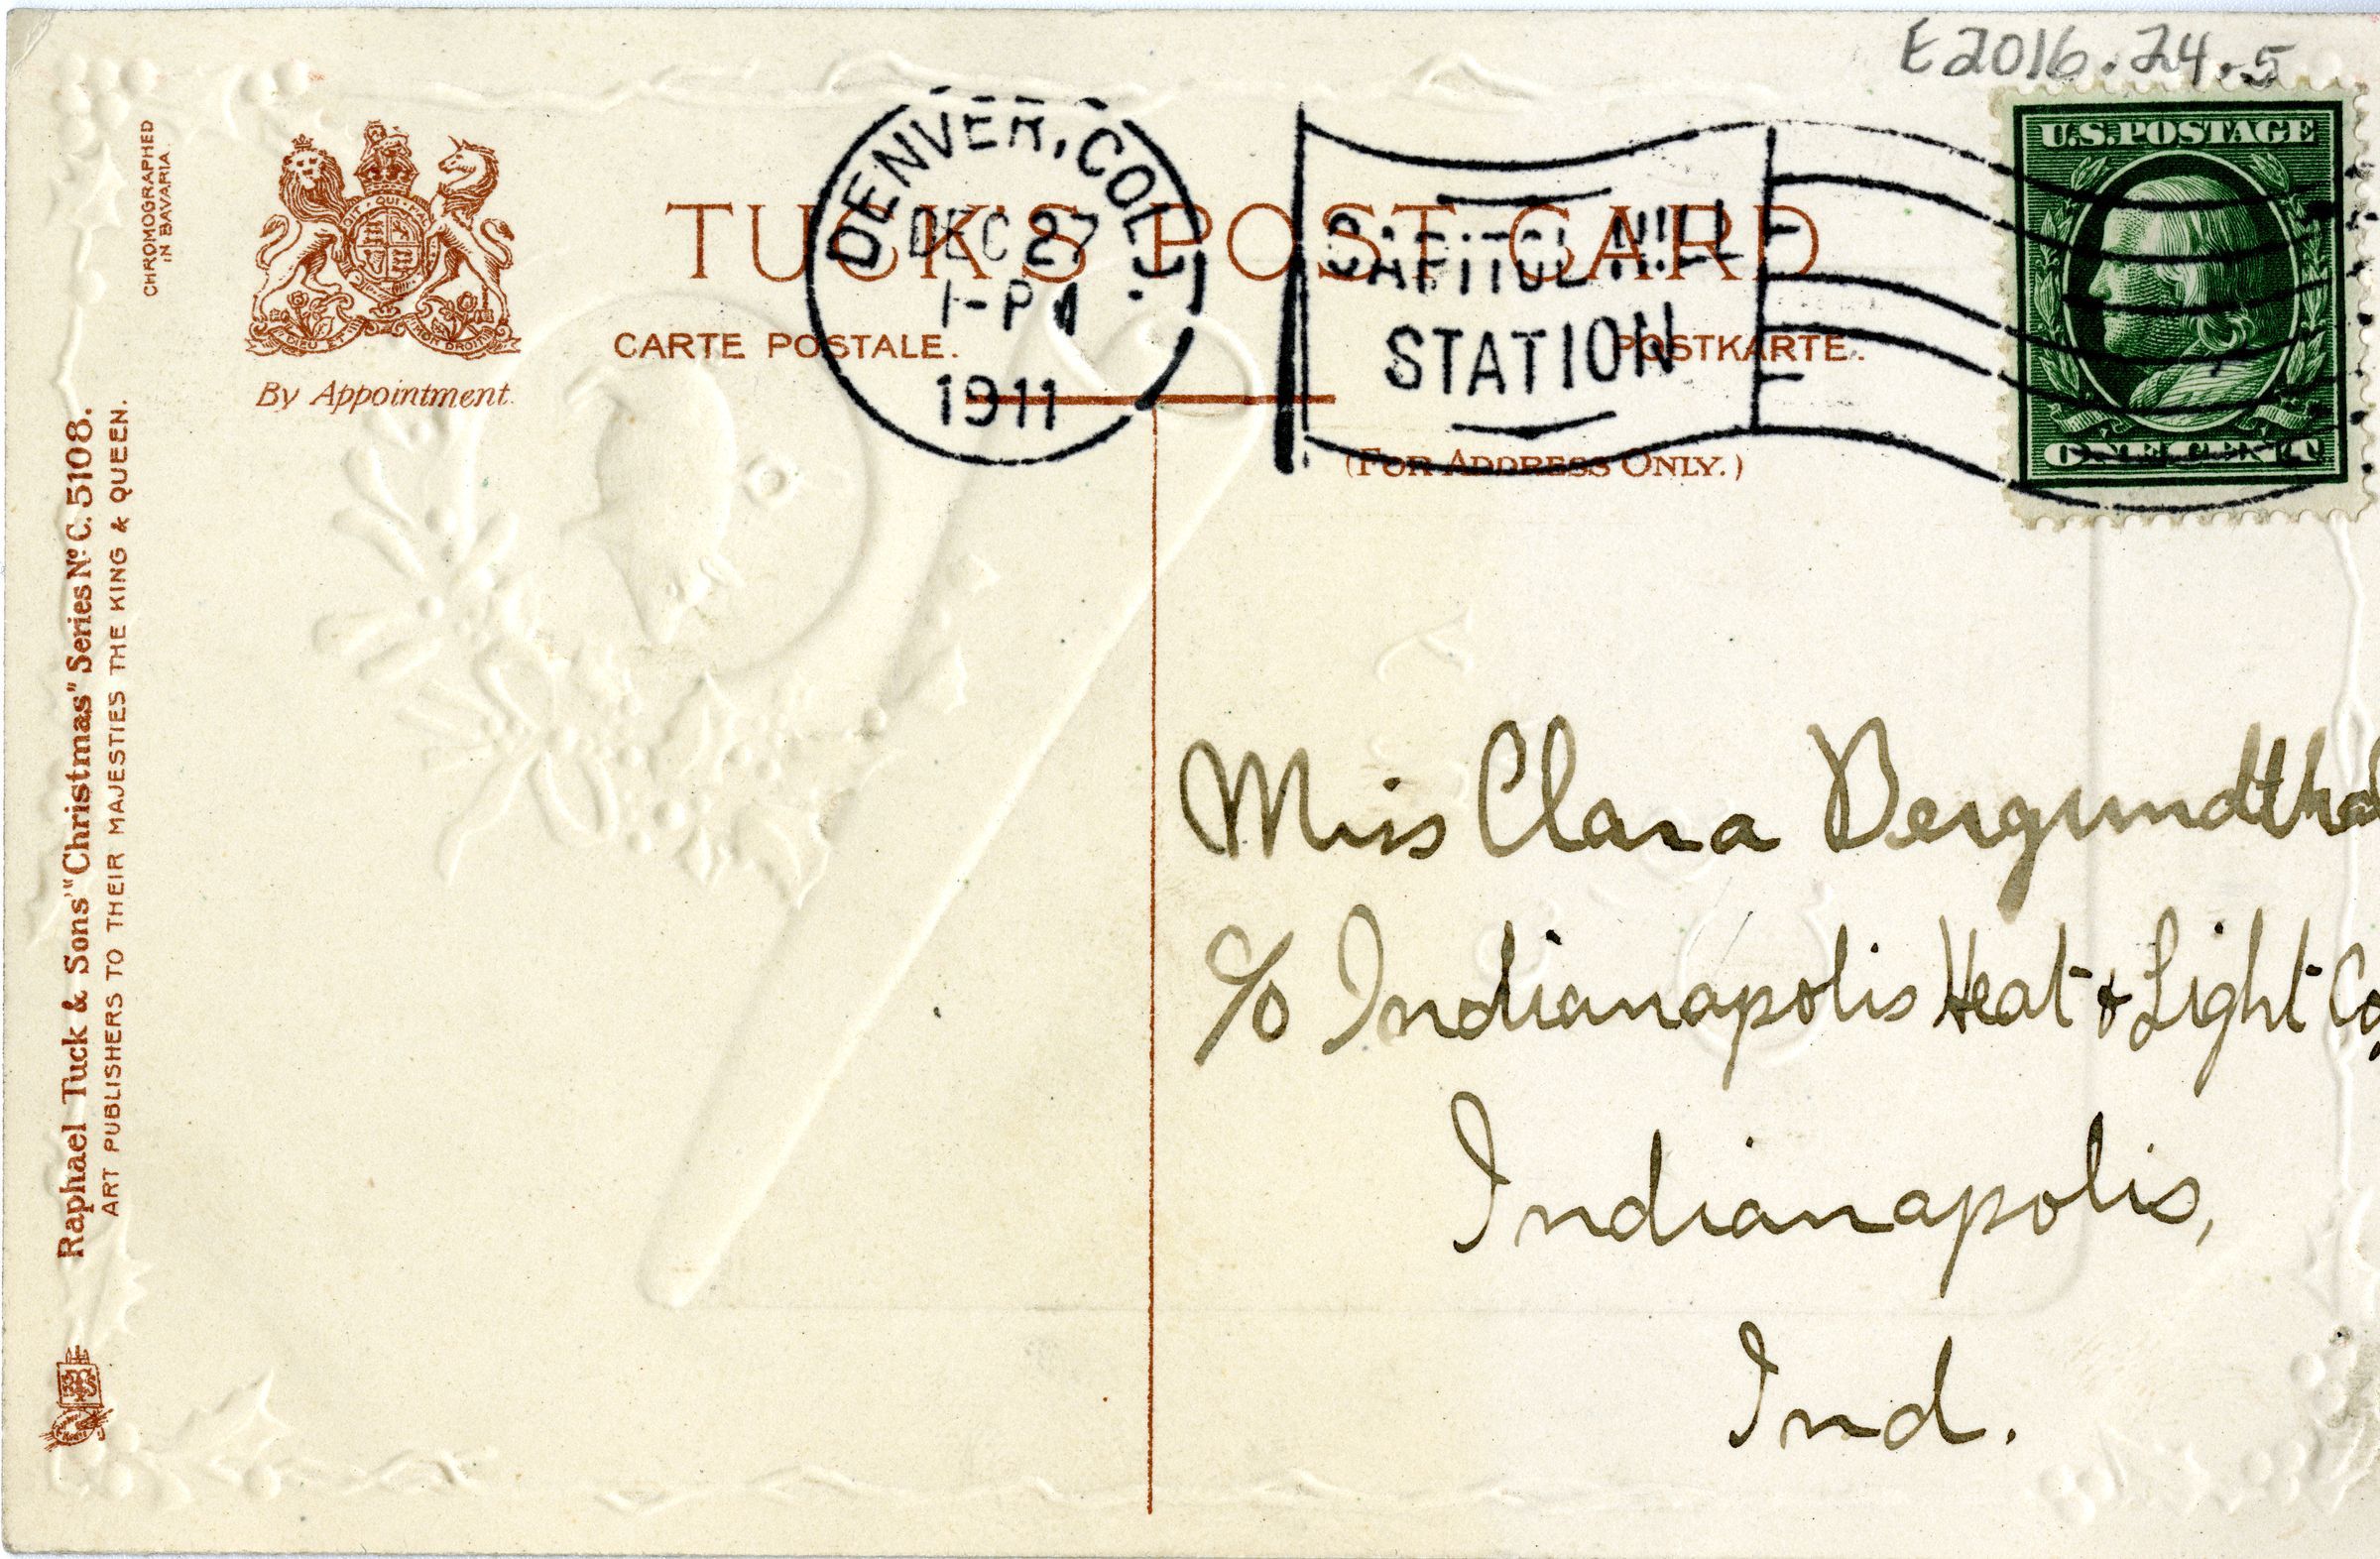 E2016.24.5
CHROMOGRAPHED
IN BAVARIA.
DIEU ET MON DROIT
By Appointment.
TUCK'S POST CARD
CARTE POSTALE.
POSTKARTE.
(FOR ADDRESS ONLY.)
DENVER, COLO.
DEC 27
1-PM
1911
CAPITOL HILL
STATION
U.S. POSTAGE
ONE CENT
Raphael Tuck & Sons' "Christmas" Series No C. 5108.
ART PUBLISHERS TO THEIR MAJESTIES THE KING & QUEEN.
Miss Clara Bergundthal
c/o Indianapolis Heat & Light Co,
Indianapolis,
Ind.